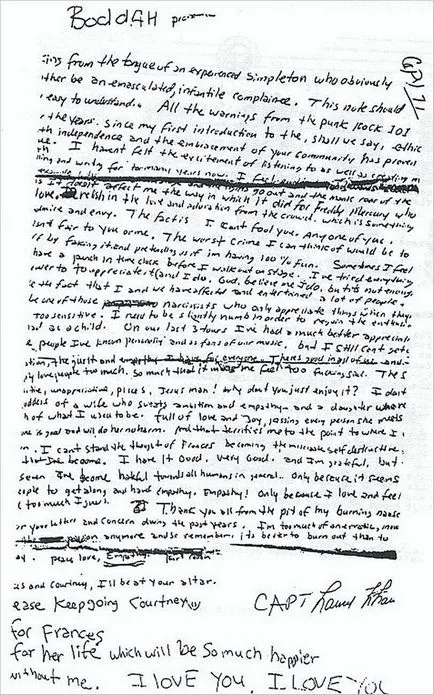 BoddAH
ing from the tongue of an experienced simpleton who obviously
ther be an emasculated, infantile complainee. This note should
easy to understand. All the warnings from the punk rock 101
the years. Since my first introduction to the, shall we say, ethic
th independence and the embracement of your community has proven
h. I havent felt the excitement of listening to as well as creating m
ning and writing for too many years now. I feel
go out and the manic roar of the
doesnt affect me the way in which it did for Freddy Mercury who
love, relish in the love and adoration from the crowd. which is something
dmire and envy. The fact is I cant fool you. Any one of you.
isnt fair to you or me. The worst crime I can think of would be to
ff by faking it and pretending as if im having 100% fun. Sometimes I feel
have a punch in time clock before I walk out on stage. I've tried everything
ower to appreciate it (and I do. God, believe me I do, but its not enough).
e the fact that I and we have affected and entertained a lot of people.
be one of those narcissists who only appreciate things when they
Too sensitive. I need to be slightly numb in order to regain the enthus.
had as a child. On our last 3 tours I've had a much better apprecia
people I've known personally and as fans of our music, but I still cant get o
the guilt and empathy I have for everyone. Theres good in all of us and
ply love people too much. So much that it makes me feel too fucking sad. The s
itive, unappreciative, pisces, Jesus man! why dont you just enjoy it? I dont
oddess of a wife who sweats ambition and empathy and a daughter who re
h of what I used to be. full of love and joy, kissing every person she meets
ne is good and will do her no harm. And that terrifies me to the point to where I
n. I cant stand the thought of Frances becoming the miserable self destructive,
that Ive become. I have it Good. Very Good. and I'm grateful, but
seven Ive become hateful towards all humans in general. Only because it seems
eople to get along and have empathy. Empathy! Only because I love and feel
too much I guess. Thank you all from the pit of my burning nause
or your letters and concern during the past years. I'm too much of an erratic, moo
anymore and so remember, its better to burn out than to
peace love, Empathy.
is and Courtney, I'll be at your altar.
ease Keep going Courtney,
CAPT
for Frances
for her life which will be so much happier
without me. I LOVE YOU. I LOVE YOU